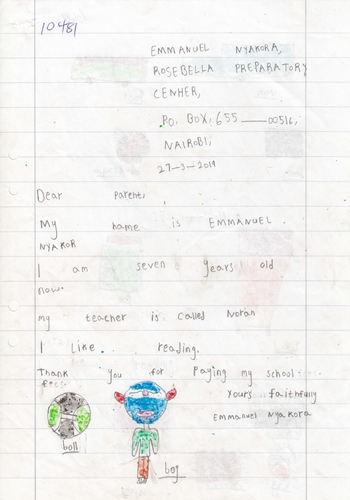 10481
EMMANUEL NYAKORA,
ROSEBELLA PREPARATORY
CENHER,
P.O. BOX, 655 ——— 00516,
NAIROBI,
27-3-2019
Dear Parent,
My name is EMMANUEL
NYAKOR
I am seven years old
now.
my teacher is called Noran
I Like reading.
Thank you for Paying my school
fees.
Yours faithfully
Emmanuel Nyakora
boll
boy